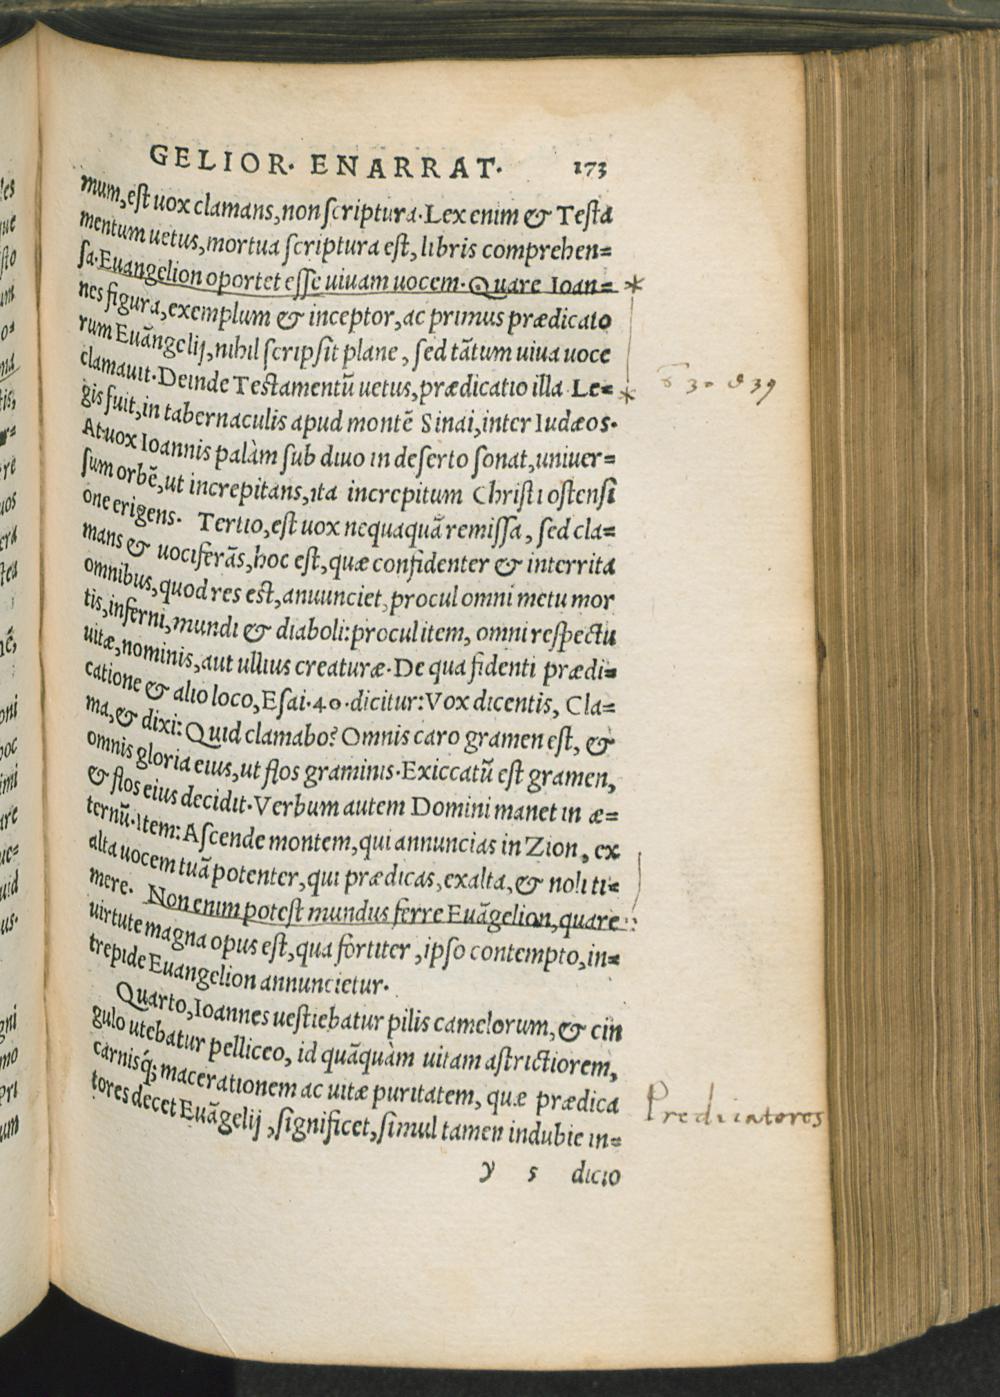 GELIOR. ENARRAT. 173
mum, est uox clamans, non scriptura. Lex enim & Testa
mentum uetus, mortua scriptura est, libris comprehen=
sa. Euangelion oportet esse uiuam uocem. Quare Ioan= *
nes figura, exemplum & inceptor, ac primus prædicato
rum Euãngelij, nihil scripsit plane, sed tãtum uiua uoce
clamauit. Deinde Testamentũ uetus, prædicatio illa Le= *
gis fuit, in tabernaculis apud montẽ Sinai, inter Iudæos.
At uox Ioannis palàm sub diuo in deserto sonat, uniuer=
sum orbẽ, ut increpitans, ita increpitum Christi ostensi
one erigens. Tertio, est uox nequaquã remissa, sed cla=
mans & uociferãs, hoc est, quæ confidenter & interrita
omnibus, quod res est, anuunciet, procul omni metu mor
tis, inferni, mundi & diaboli: procul item, omni respectu
uitæ, nominis, aut ullius creaturæ. De qua fidenti prædi=
catione & alio loco, Esai. 40. dicitur: Vox dicentis, Cla=
ma, & dixi: Quid clamabo? Omnis caro gramen est, &
omnis gloria eius, ut flos graminis. Exiccatũ est gramen,
& flos eius decidit. Verbum autem Domini manet in æ=
ternũ. Item: Ascende montem, qui annuncias in Zion, ex
alta uocem tuã potenter, qui prædicas, exalta, & noli ti=
mere. Non enim potest mundus ferre Euãgelion, quare
uirtute magna opus est, qua fortiter, ipso contempto, in=
trepide Euangelion annuncietur.
Quarto, Ioannes uestiebatur pilis camelorum, & cin
gulo utebatur pelliceo, id quãquàm uitam astrictiorem,
carnisq́; macerationem ac uitæ puritatem, quæ prædica
tores decet Euãgelij, significet, simul tamen indubie in=
y 5 dicio
Predicatores